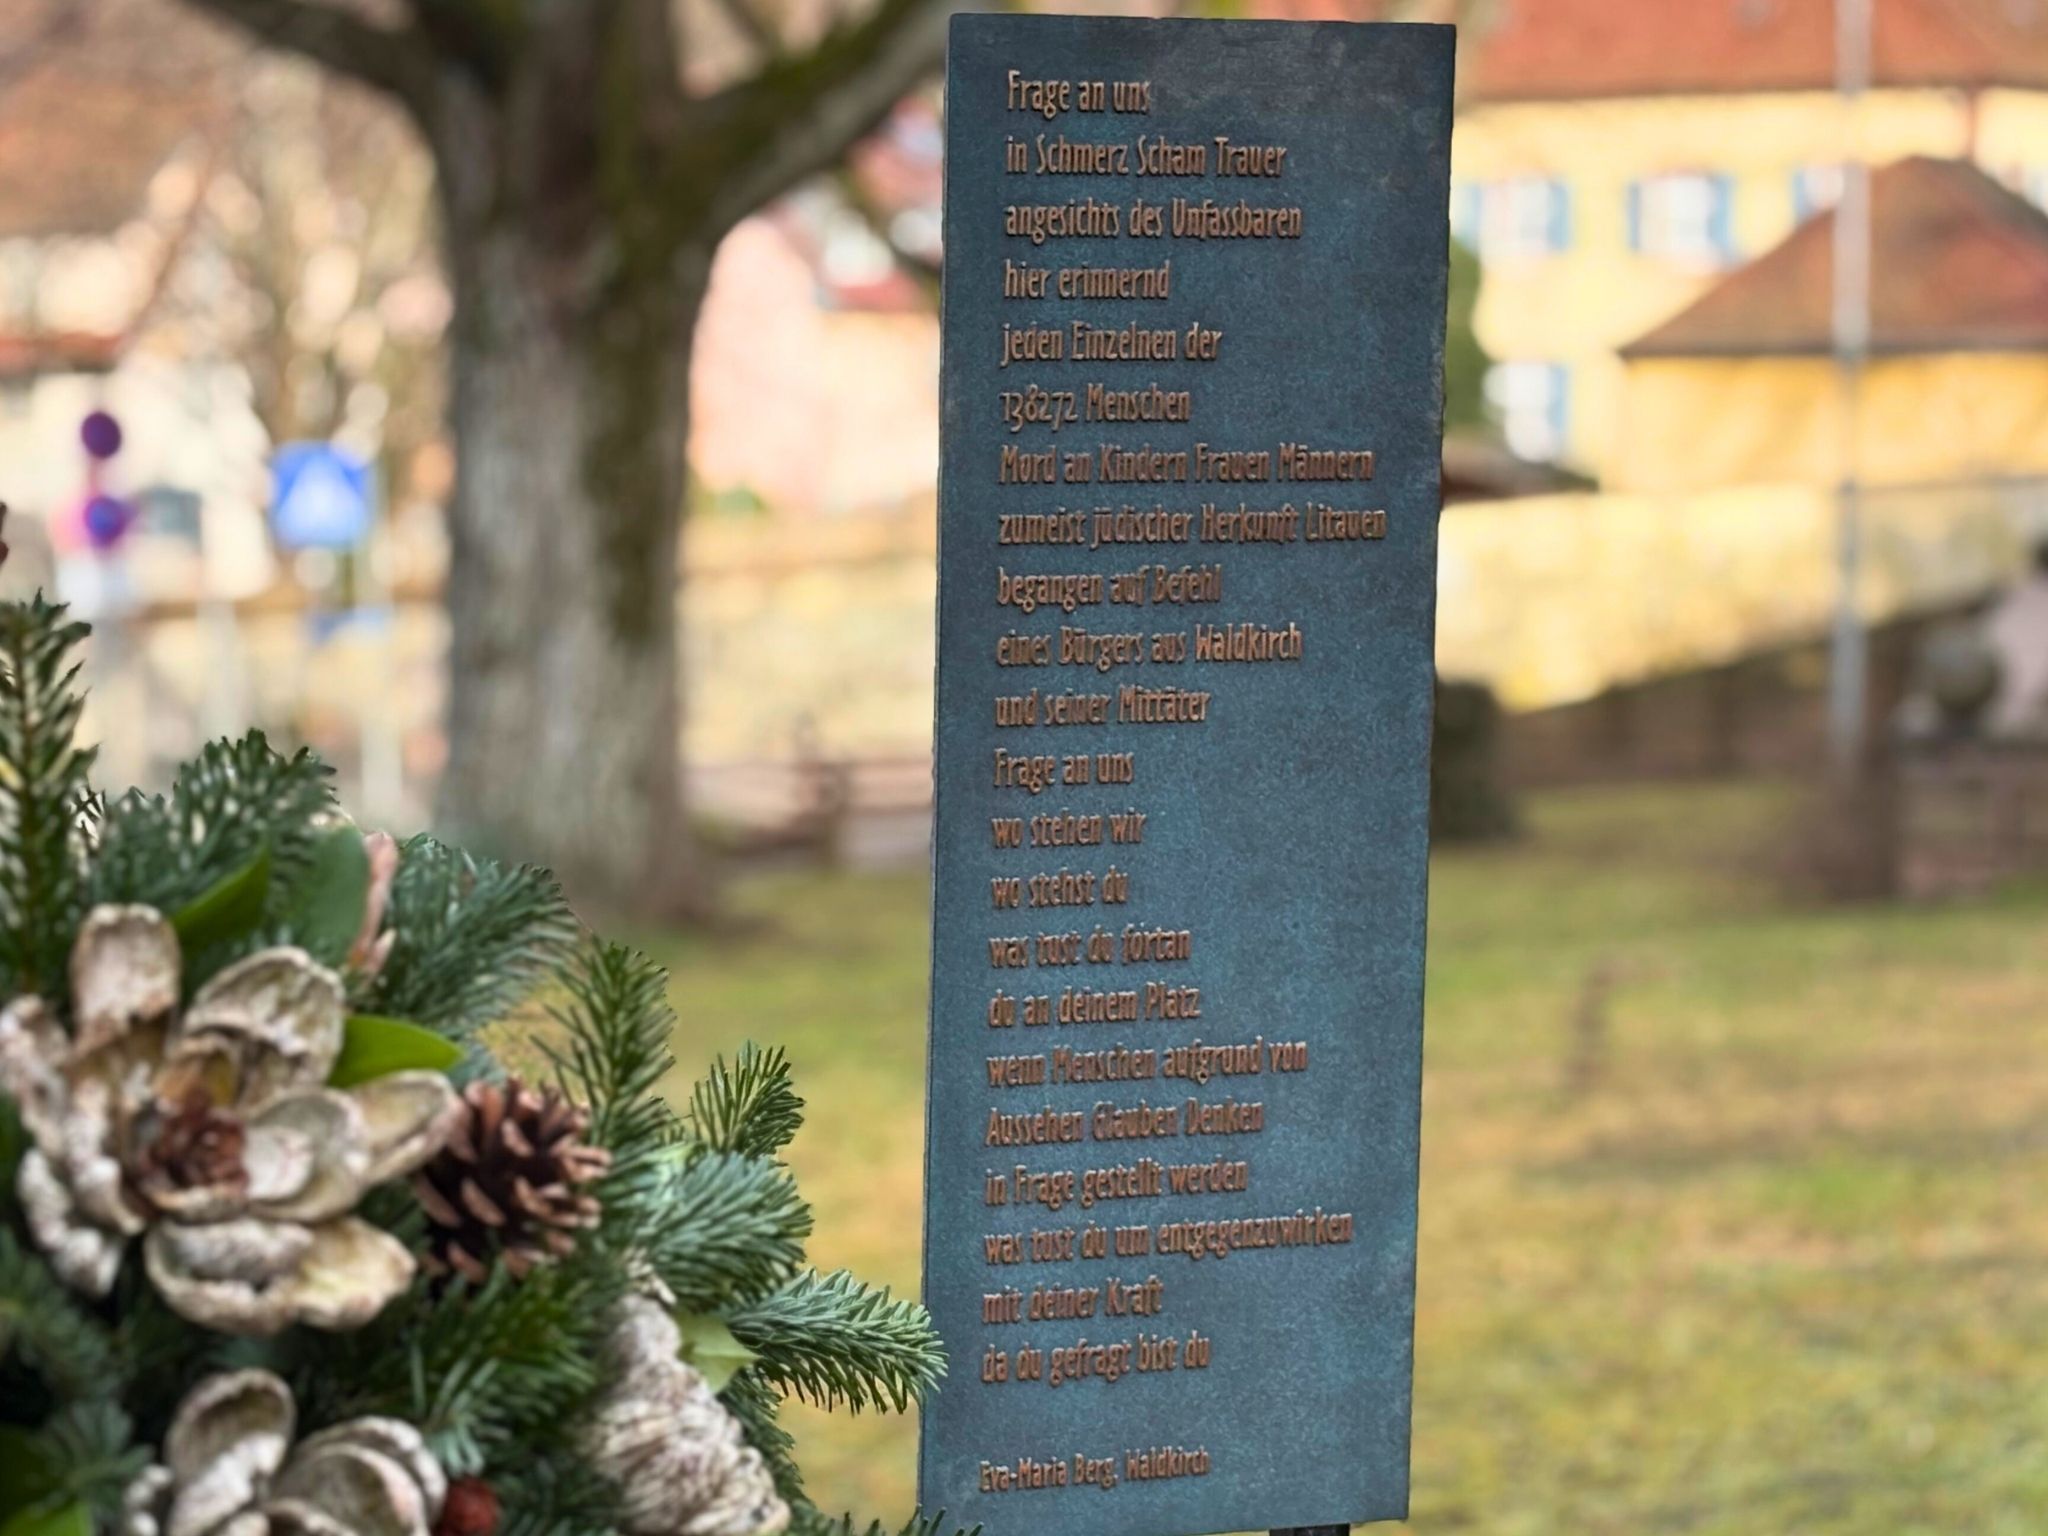 Frage an uns
in Schmerz Scham Trauer
angesichts des Unfassbaren
hier erinnernd
jeden Einzelnen der
138272 Menschen
Mord an Kindern Frauen Männern
zumeist jüdischer Herkunft Litauen
begangen auf Befehl
eines Bürgers aus Waldkirch
und seiner Mittäter
Frage an uns
wo stehen wir
wo stehst du
was tust du fortan
du an deinem Platz
wenn Menschen aufgrund von
Aussehen Glauben Denken
in Frage gestellt werden
was tust du um entgegenzuwirken
mit deiner Kraft
da du gefragt bist du
Eva-Maria Berg, Waldkirch